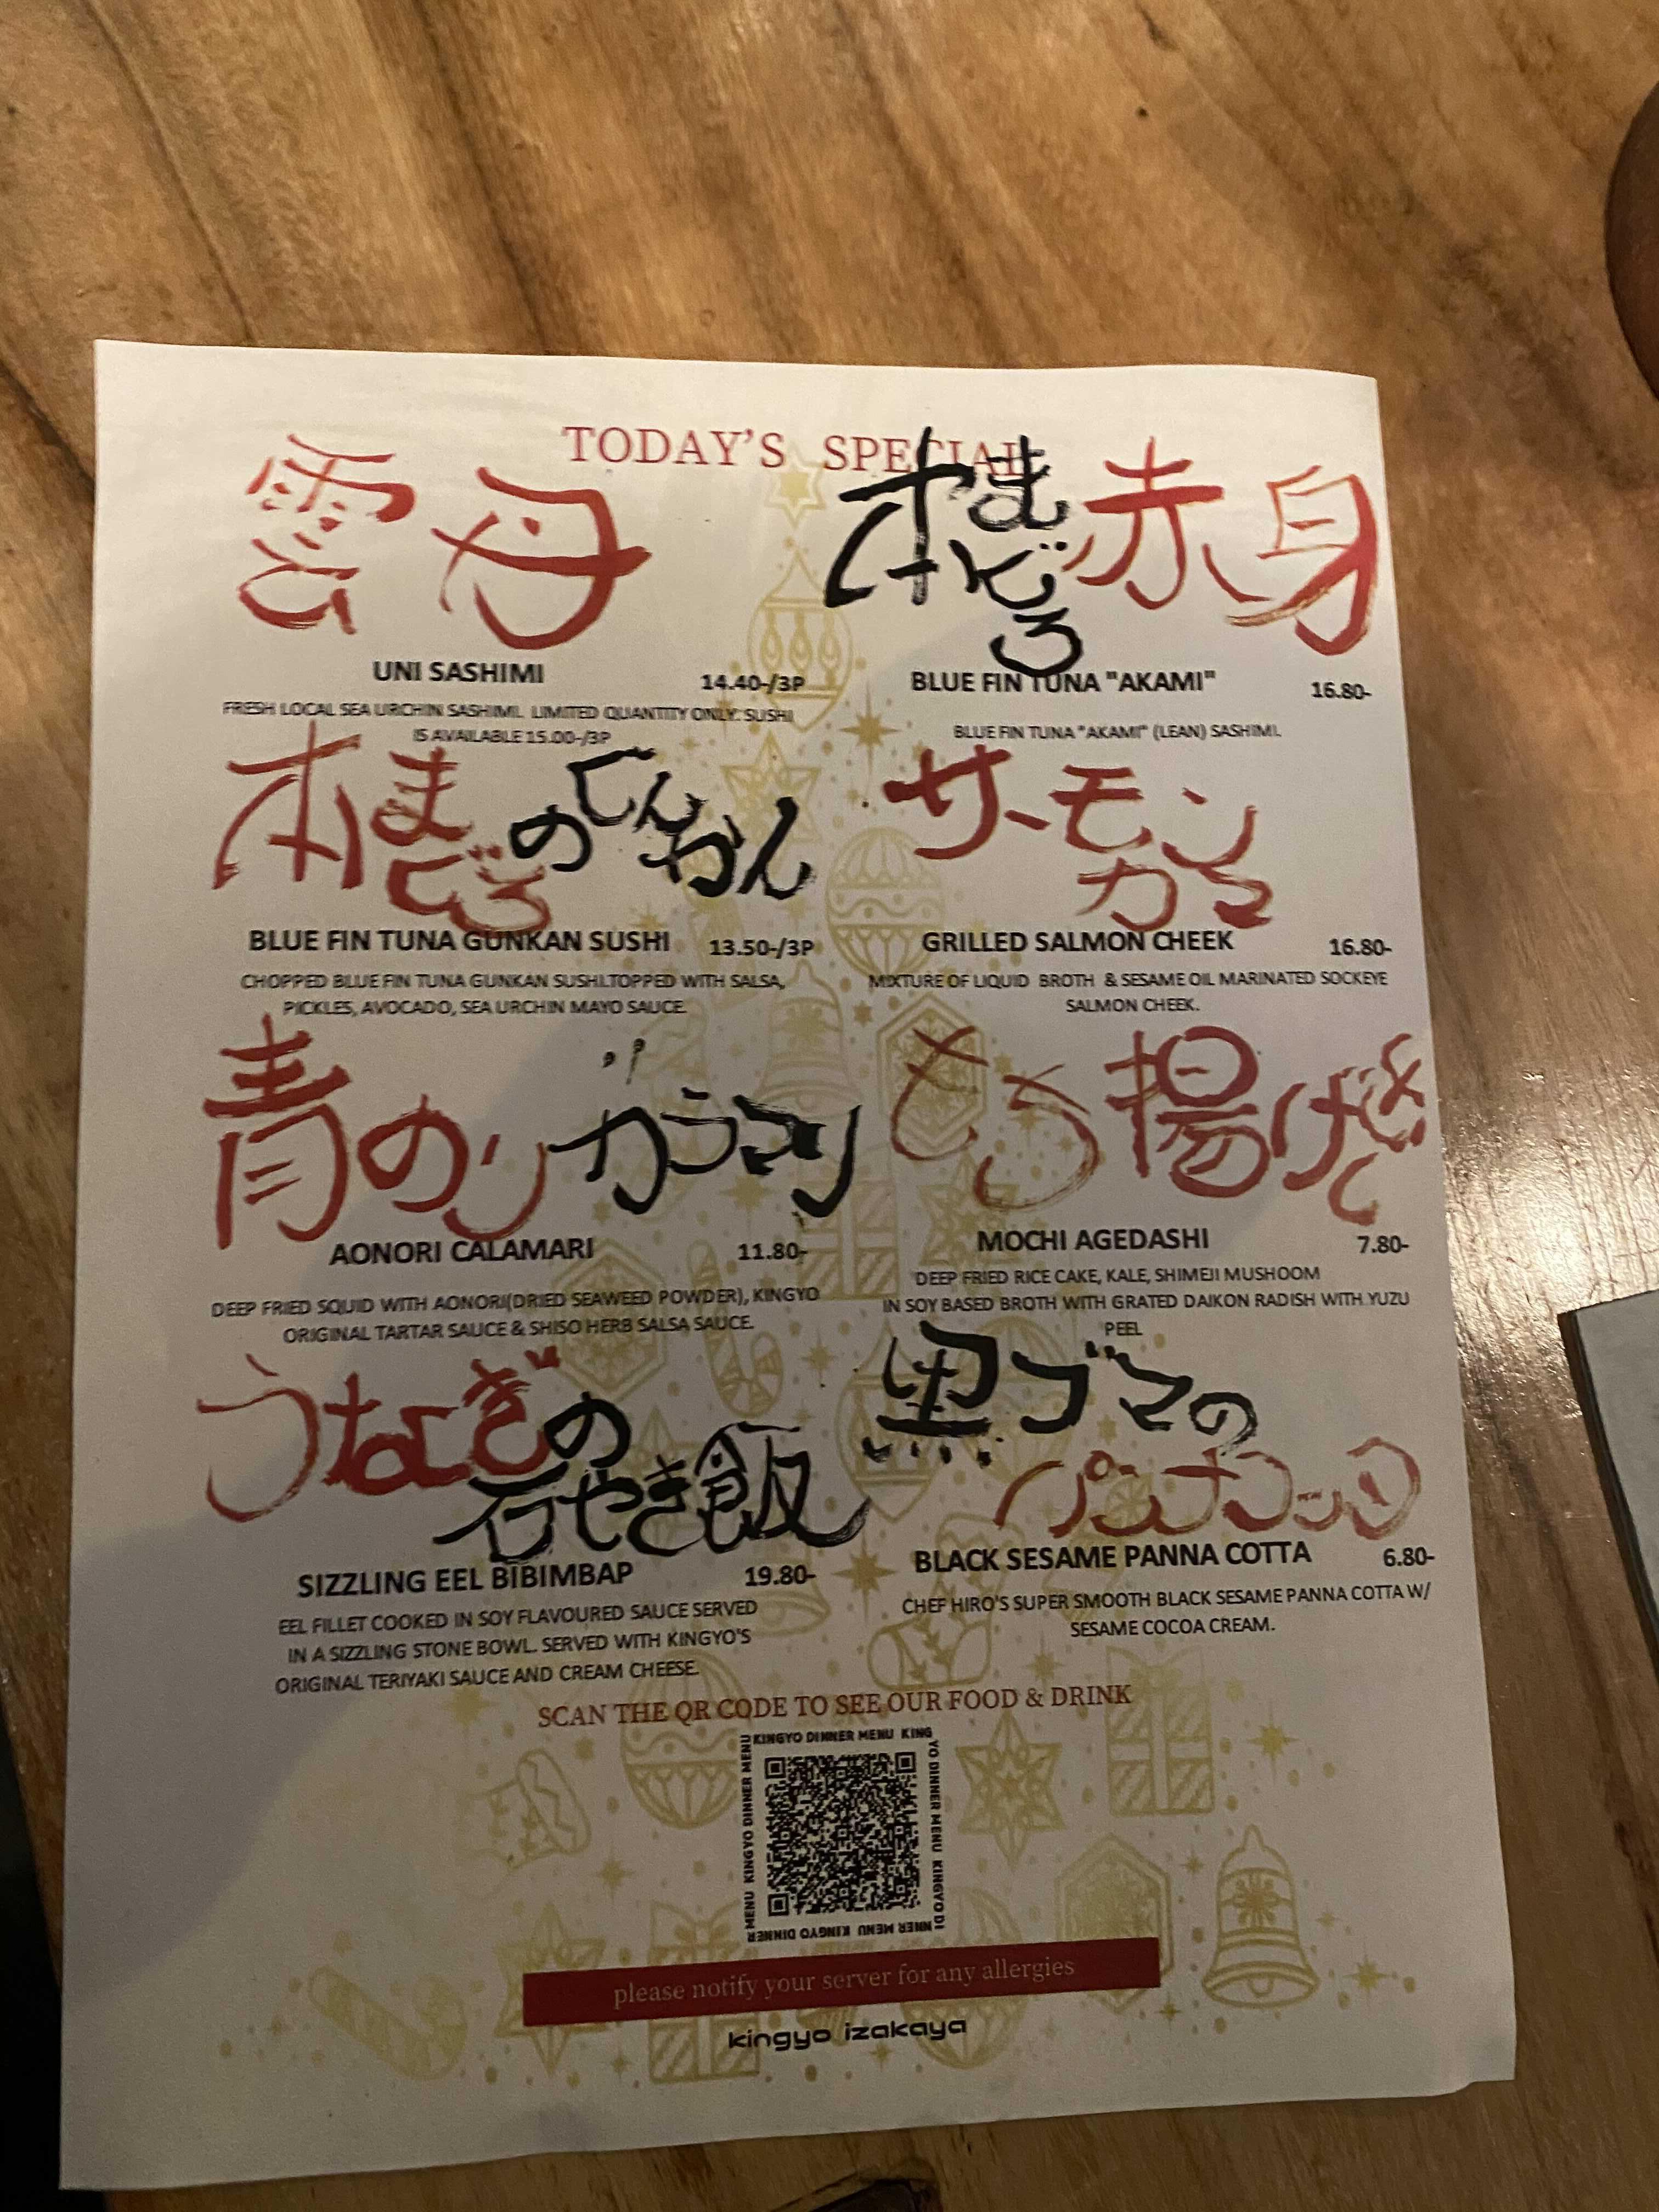 TODAY'S SPECIAL
雲母
UNI SASHIMI 14.40-/3P
FRESH LOCAL SEA URCHIN SASHIMI. LIMITED QUANTITY ONLY. SUSHI
IS AVAILABLE 15.00-/3P
本まぐろ赤身
BLUE FIN TUNA "AKAMI" 16.80-
BLUE FIN TUNA "AKAMI" (LEAN) SASHIMI.
本まぐろのぐんかん
BLUE FIN TUNA GUNKAN SUSHI 13.50-/3P
CHOPPED BLUE FIN TUNA GUNKAN SUSHI.TOPPED WITH SALSA,
PICKLES, AVOCADO, SEA URCHIN MAYO SAUCE.
サーモンカマ
GRILLED SALMON CHEEK 16.80-
MIXTURE OF LIQUID BROTH & SESAME OIL MARINATED SOCKEYE
SALMON CHEEK.
青のりカラマリ
AONORI CALAMARI 11.80-
DEEP FRIED SQUID WITH AONORI(DRIED SEAWEED POWDER), KINGYO
ORIGINAL TARTAR SAUCE & SHISO HERB SALSA SAUCE.
もち揚げ
MOCHI AGEDASHI 7.80-
DEEP FRIED RICE CAKE, KALE, SHIMEJI MUSHOOM
IN SOY BASED BROTH WITH GRATED DAIKON RADISH WITH YUZU
PEEL
うなぎの
石やき飯
SIZZLING EEL BIBIMBAP 19.80-
EEL FILLET COOKED IN SOY FLAVOURED SAUCE SERVED
IN A SIZZLING STONE BOWL. SERVED WITH KINGYO'S
ORIGINAL TERIYAKI SAUCE AND CREAM CHEESE.
黒ゴマの
パンナコッタ
BLACK SESAME PANNA COTTA 6.80-
CHEF HIRO'S SUPER SMOOTH BLACK SESAME PANNA COTTA W/
SESAME COCOA CREAM.
SCAN THE QR CODE TO SEE OUR FOOD & DRINK
KINGYO DINNER MENU KINGYO DINNER MENU KINGYO DINNER MENU KINGYO DINNER MENU KINGYO DINNER MENU
please notify your server for any allergies
kingyo izakaya